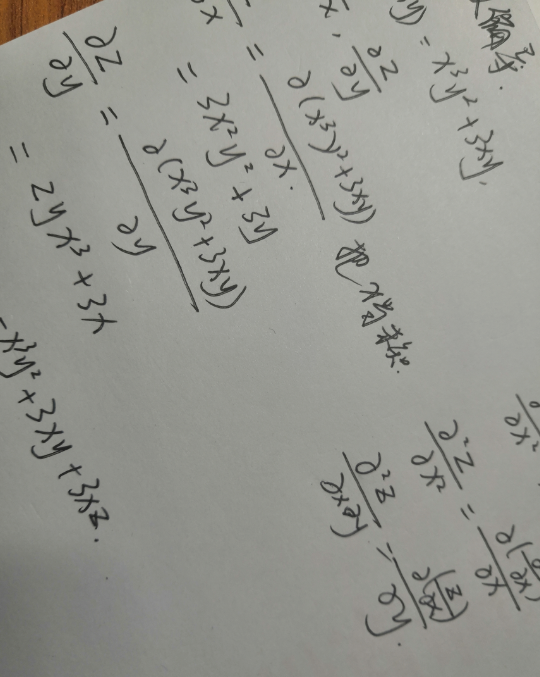 偏导.
y) = x³y² + 3xy,
x, ∂z/∂y
∂x = ∂(x³y²+3xy)/∂x. 把x当未知.
= 3x²y² + 3y
∂z/∂y = ∂(x³y²+3xy)/∂y
= 2yx³ + 3x
x³y² + 3xy + 3xz.
∂x²
∂²z/∂x² = ∂(∂x)/∂x
∂²z/∂x∂y = ∂(z/∂x)/∂y.